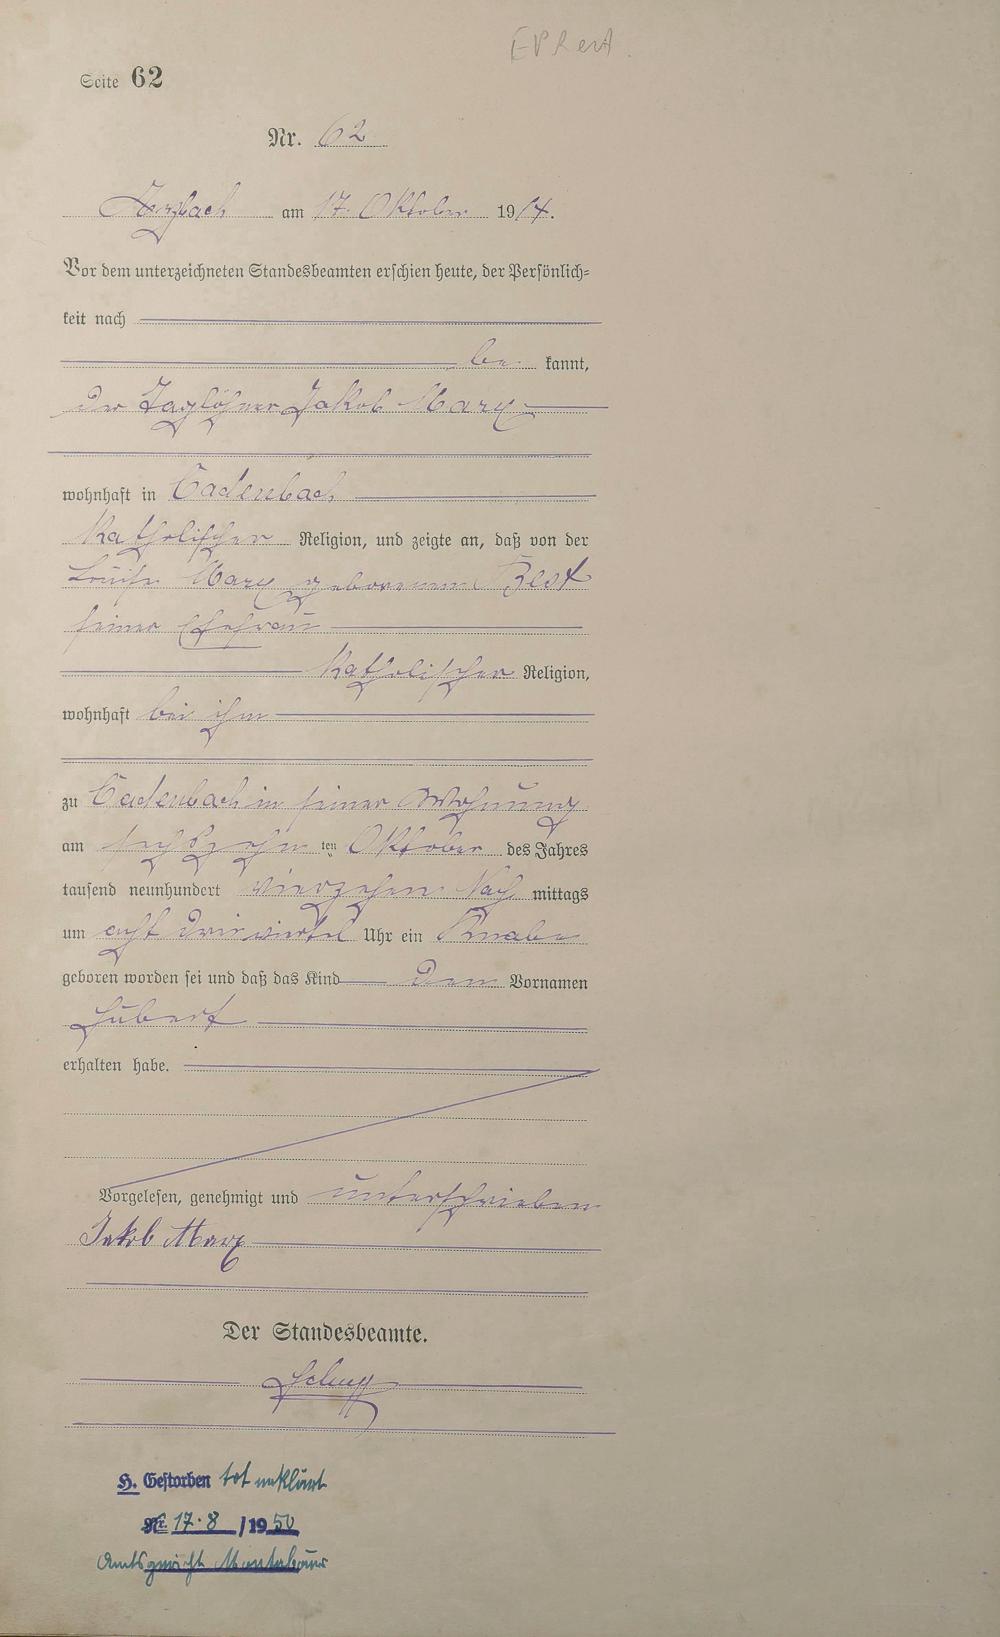 Seite 62
Nr. 62
Arzbach am 17. Oktober 1914.
Vor dem unterzeichneten Standesbeamten erschien heute, der Persönlich=
keit nach
be kannt,
der Taglöhner Jakob Marx
wohnhaft in Cadenbach
katholischer Religion, und zeigte an, daß von der
Louise Marx geborenen Best
seiner Ehefrau
katholischer Religion,
wohnhaft bei ihm
zu Cadenbach in seiner Wohnung
am sechszehn ten Oktober des Jahres
tausend neunhundert vierzehn Nach mittags
um acht dreiviertel Uhr ein Knabe
geboren worden sei und daß das Kind den Vornamen
Hubert
erhalten habe.
Vorgelesen, genehmigt und unterschrieben
Jakob Marx
Der Standesbeamte.
H. Gestorben tot erklärt
Nr. 17.8 /1950
Amtsgericht Montabaur